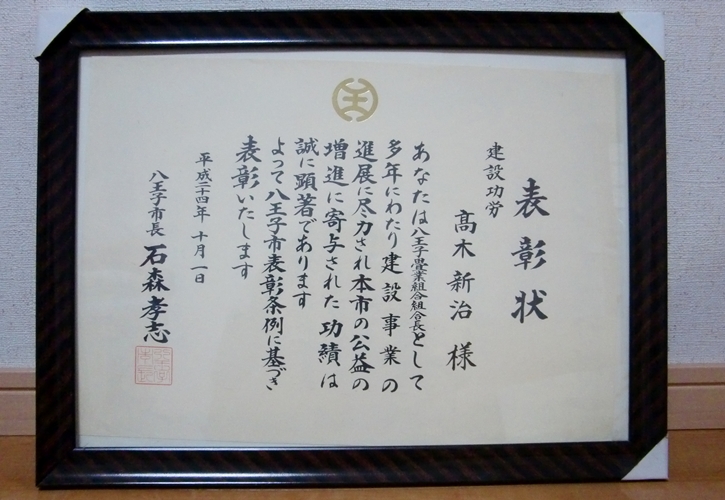 表彰状
建設功労
髙木新治様
あなたは八王子畳業組合組合長として
多年にわたり建設事業の
進展に尽力され本市の公益の
増進に寄与された功績は
誠に顕著であります
よって八王子市表彰条例に基づき
表彰いたします
平成二十四年十月一日
八王子市長石森孝志